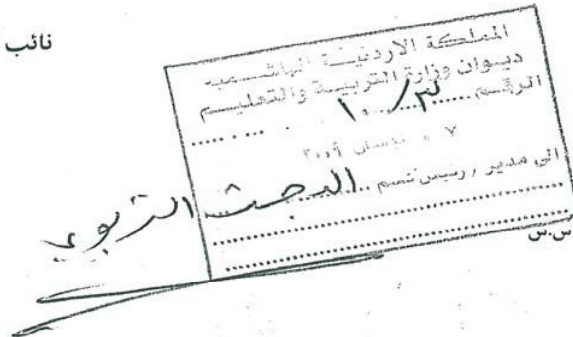 نائب
المملكة الاردنية الهاشمية
ديوان وزارة التربية والتعليم
الرقم ........ ١٠/٣ ........
٧ نيسان ٢٠٠٩
الى مدير / رئيس قسم .. البحث التربوي
س.س